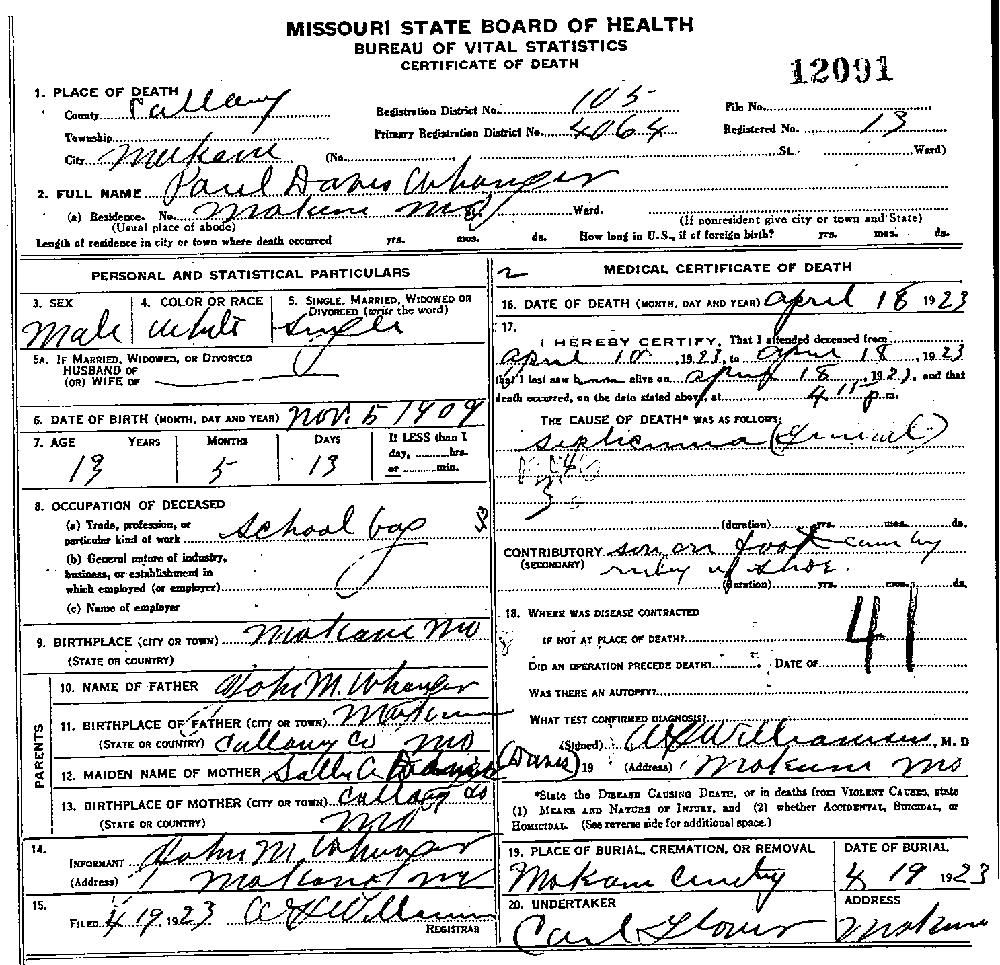 MISSOURI STATE BOARD OF HEALTH
BUREAU OF VITAL STATISTICS
CERTIFICATE OF DEATH
12091
1. PLACE OF DEATH
County Callaway
Registration District No. 105
File No.
Township
Primary Registration District No. 4064
Registered No. 13
City Mokane (No. St. Ward)
2. FULL NAME Paul Davis Whanger
(a) Residence. No. Mokane Mo St. Ward.
(Usual place of abode) (If nonresident give city or town and State)
Length of residence in city or town where death occurred yrs. mos. ds. How long in U.S., if of foreign birth? yrs. mos. ds.
PERSONAL AND STATISTICAL PARTICULARS
3. SEX 4. COLOR OR RACE 5. SINGLE, MARRIED, WIDOWED OR
DIVORCED (write the word)
Male White Single
5A. IF MARRIED, WIDOWED, OR DIVORCED
HUSBAND OF
(OR) WIFE OF
6. DATE OF BIRTH (MONTH, DAY AND YEAR) Nov. 5 1909
7. AGE YEARS MONTHS DAYS If LESS than 1
day, hrs.
or min.
13 5 13
8. OCCUPATION OF DECEASED
(a) Trade, profession, or
particular kind of work School boy
(b) General nature of industry,
business, or establishment in
which employed (or employer)
(c) Name of employer
9. BIRTHPLACE (CITY OR TOWN) Mokane Mo
(STATE OR COUNTRY)
PARENTS
10. NAME OF FATHER John M. Whanger
11. BIRTHPLACE OF FATHER (CITY OR TOWN) Mokane
(STATE OR COUNTRY) Callaway Co Mo
12. MAIDEN NAME OF MOTHER Sally A. (Davis)
13. BIRTHPLACE OF MOTHER (CITY OR TOWN) Callaway Co
(STATE OR COUNTRY) Mo
14.
INFORMANT John M. Whanger
(Address) Mokane Mo
15.
FILED 4 19, 1923 W Williamson
REGISTRAR
2 MEDICAL CERTIFICATE OF DEATH
16. DATE OF DEATH (MONTH, DAY AND YEAR) April 18 1923
17.
I HEREBY CERTIFY, That I attended deceased from
April 10, 1923, to April 18, 1923
that I last saw h alive on April 18, 1923, and that
death occurred, on the date stated above, at 4 15 p.m.
THE CAUSE OF DEATH* WAS AS FOLLOWS:
Septicemia (General)
(duration) yrs. mos. ds.
CONTRIBUTORY sore on foot caused by
(SECONDARY) rubbing of shoe.
(duration) yrs. mos. ds.
41
18. WHERE WAS DISEASE CONTRACTED
IF NOT AT PLACE OF DEATH?
DID AN OPERATION PRECEDE DEATH? DATE OF
WAS THERE AN AUTOPSY?
WHAT TEST CONFIRMED DIAGNOSIS?
(Signed) Williamson, M. D
19 (Address) Mokane Mo
*State the DISEASE CAUSING DEATH, or in deaths from VIOLENT CAUSES, state
(1) MEANS AND NATURE OF INJURY, and (2) whether ACCIDENTAL, SUICIDAL, or
HOMICIDAL. (See reverse side for additional space.)
19. PLACE OF BURIAL, CREMATION, OR REMOVAL DATE OF BURIAL
Mokane Cemetery 4 19 1923
20. UNDERTAKER ADDRESS
Carl Glover Mokane